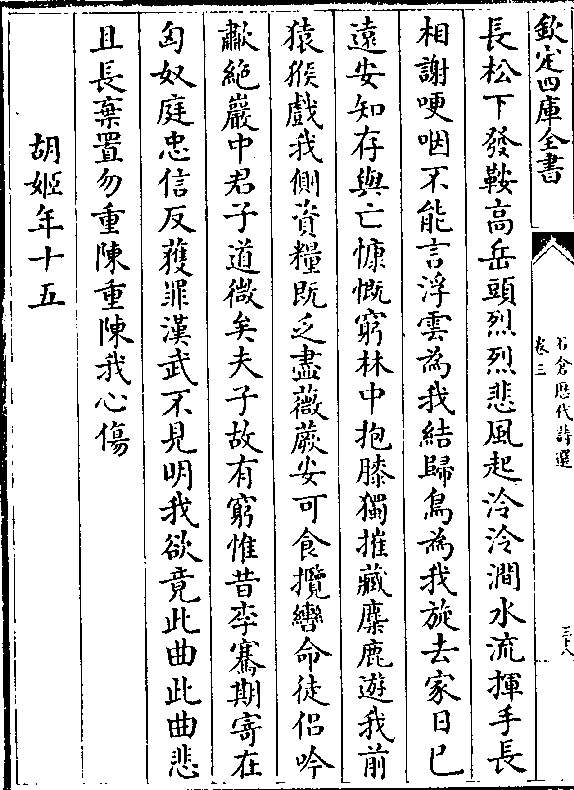 欽定四庫全書
石倉歷代詩選
卷三
三十八
長松下發鞍高岳頭烈烈悲風起泠泠澗水流揮手長
相謝哽咽不能言浮雲為我結歸鳥為我旋去家日已
遠安知存與亡慷慨窮林中抱膝獨摧藏麋鹿遊我前
猿猴戲我側資糧既乏盡薇蕨安可食攬轡命徒侶吟
歗絶巖中君子道微矣夫子故有窮惟昔李騫期寄在
匈奴庭忠信反獲罪漢武不見明我欲竟此曲此曲悲
且長棄置勿重陳重陳我心傷
胡姬年十五